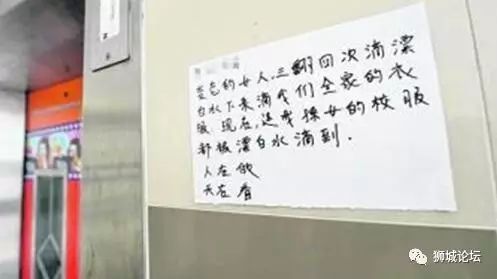 的女人,三翻四次滴漂
白水下来滴我们全家的衣
服,现在,连我孫女的校服
都被漂白水滴到.
人在做
天在看
狮城论坛